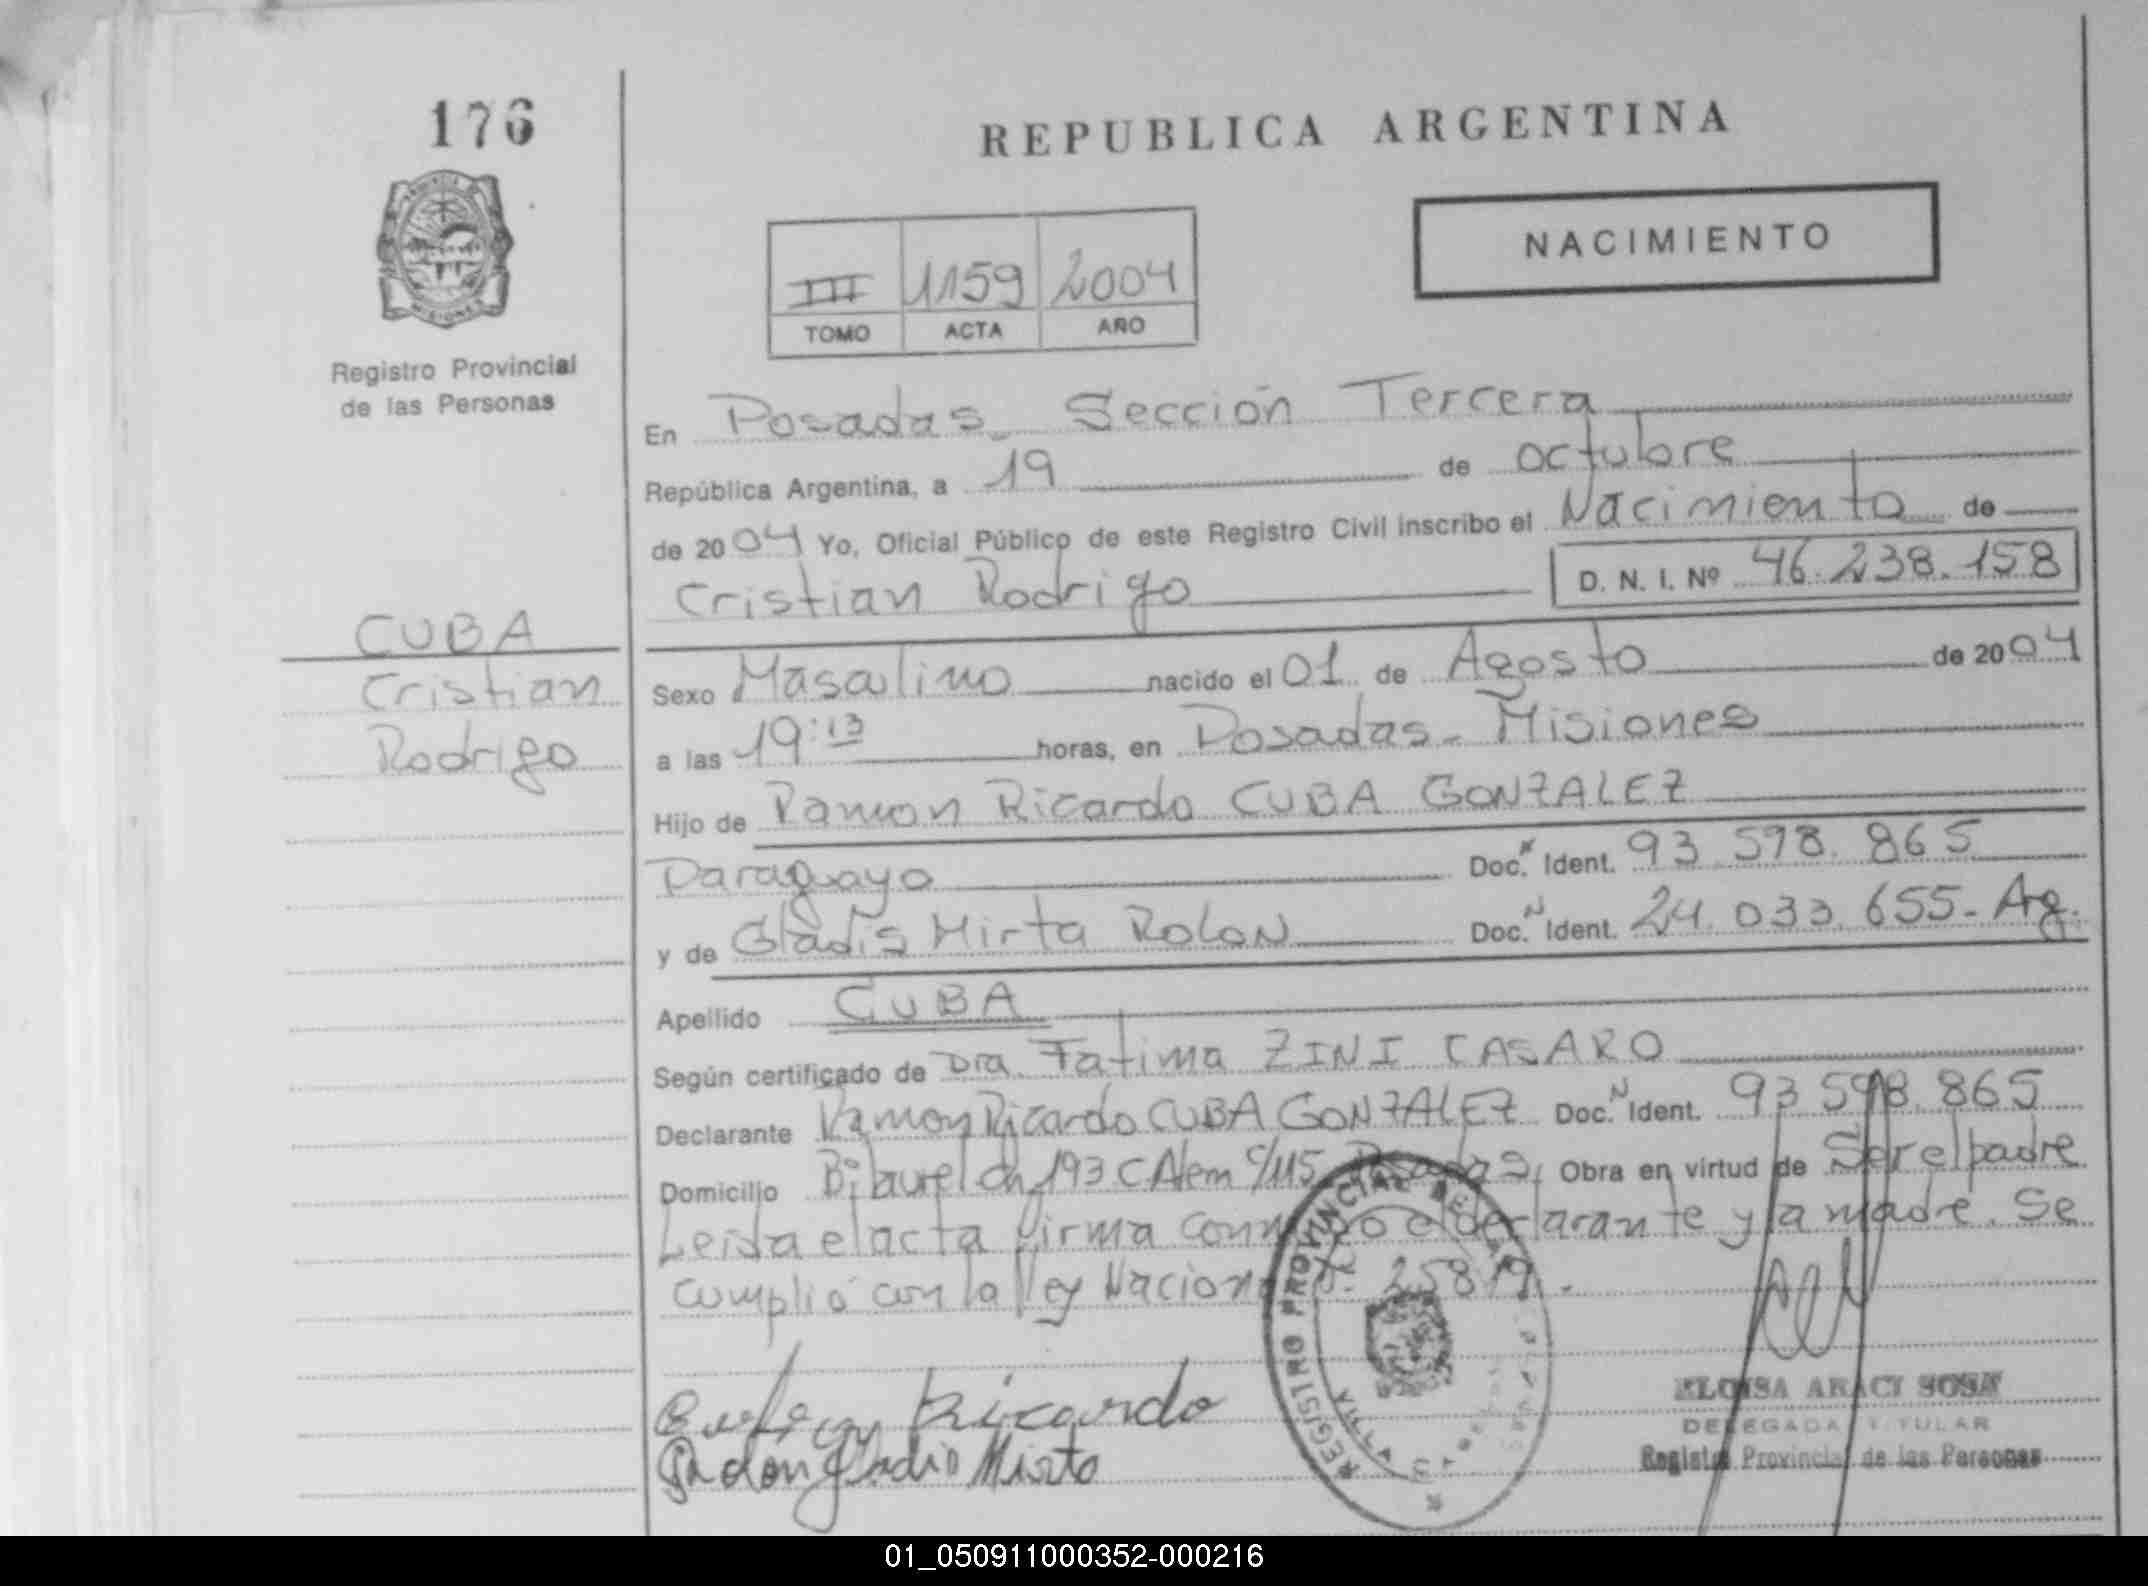 176
REPUBLICA ARGENTINA
NACIMIENTO
III 1159 2004
TOMO ACTA AÑO
Registro Provincial
de las Personas
En Posadas Sección Tercera
República Argentina, a 19 de octubre
de 2004 Yo, Oficial Público de este Registro Civil inscribo el Nacimiento de
Cristian Rodrigo D. N. I. Nº 46.238.158
CUBA
Cristian
Rodrigo
Sexo Masculino nacido el 01 de Agosto de 2004
a las 19:13 horas, en Posadas - Misiones
Hijo de Ramon Ricardo CUBA GONZALEZ
Paraguayo Doc. Ident. 93.598.865
y de Gladis Mirta ROLON Doc. N Ident. 24.033.655 - Arg.
Apellido CUBA
Según certificado de Dra. Fatima ZINI CASARO
Declarante Ramon Ricardo CUBA GONZALEZ Doc. N Ident. 93.598.865
Domicilio ch 193 C Alem c/115 Posadas, Obra en virtud de Ser el padre
Leida el acta firma conmigo el declarante y la madre. Se
cumplió con la ley Nacional 25819.-
Ricardo
Mirta
REGISTRO PROVINCIAL DE LAS
VILLA
ELOISA ARACI SOSA
DELEGADA TITULAR
Registro Provincial de las Personas
01_050911000352-000216